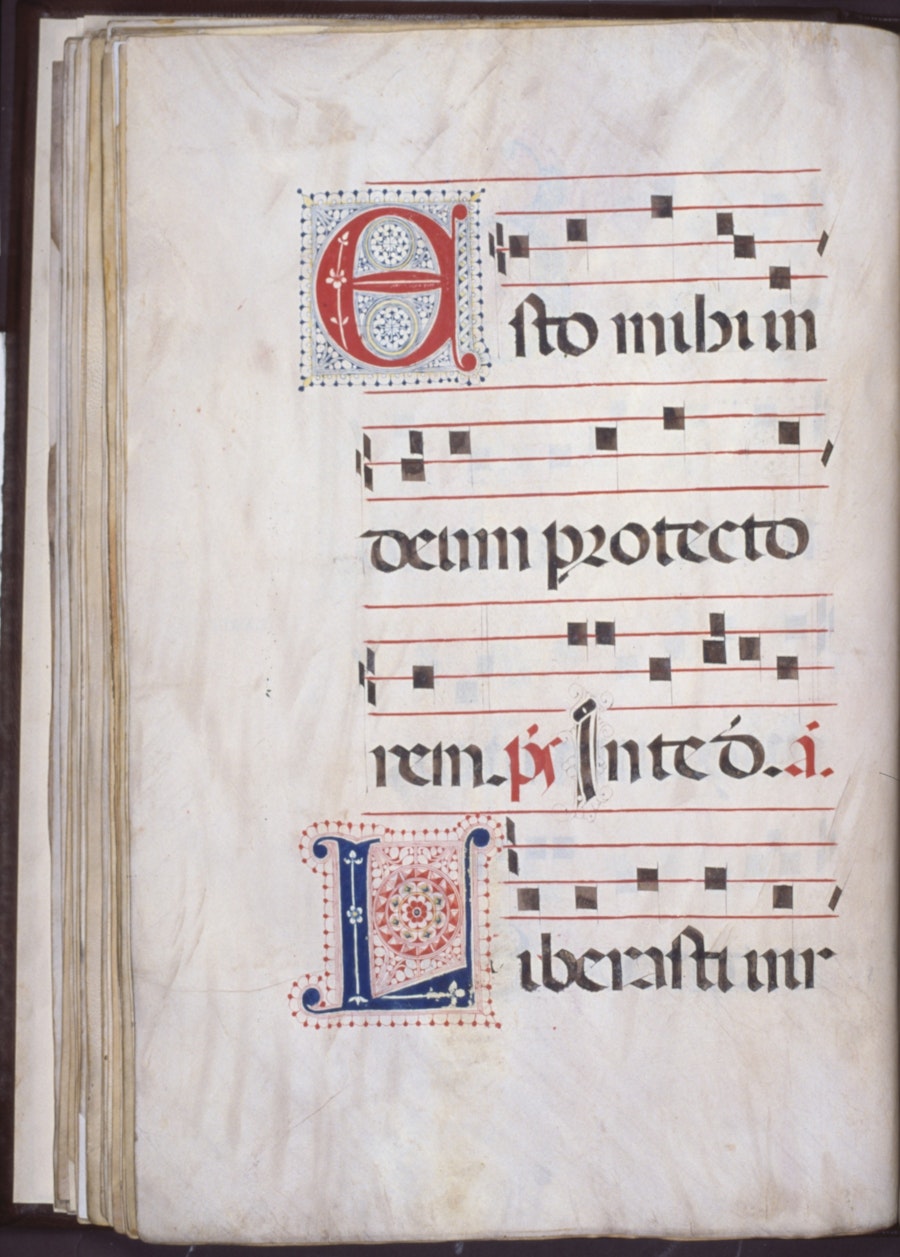 Esto mihi in
deum protecto
rem. ps In te d̄. a.
Liberasti vir